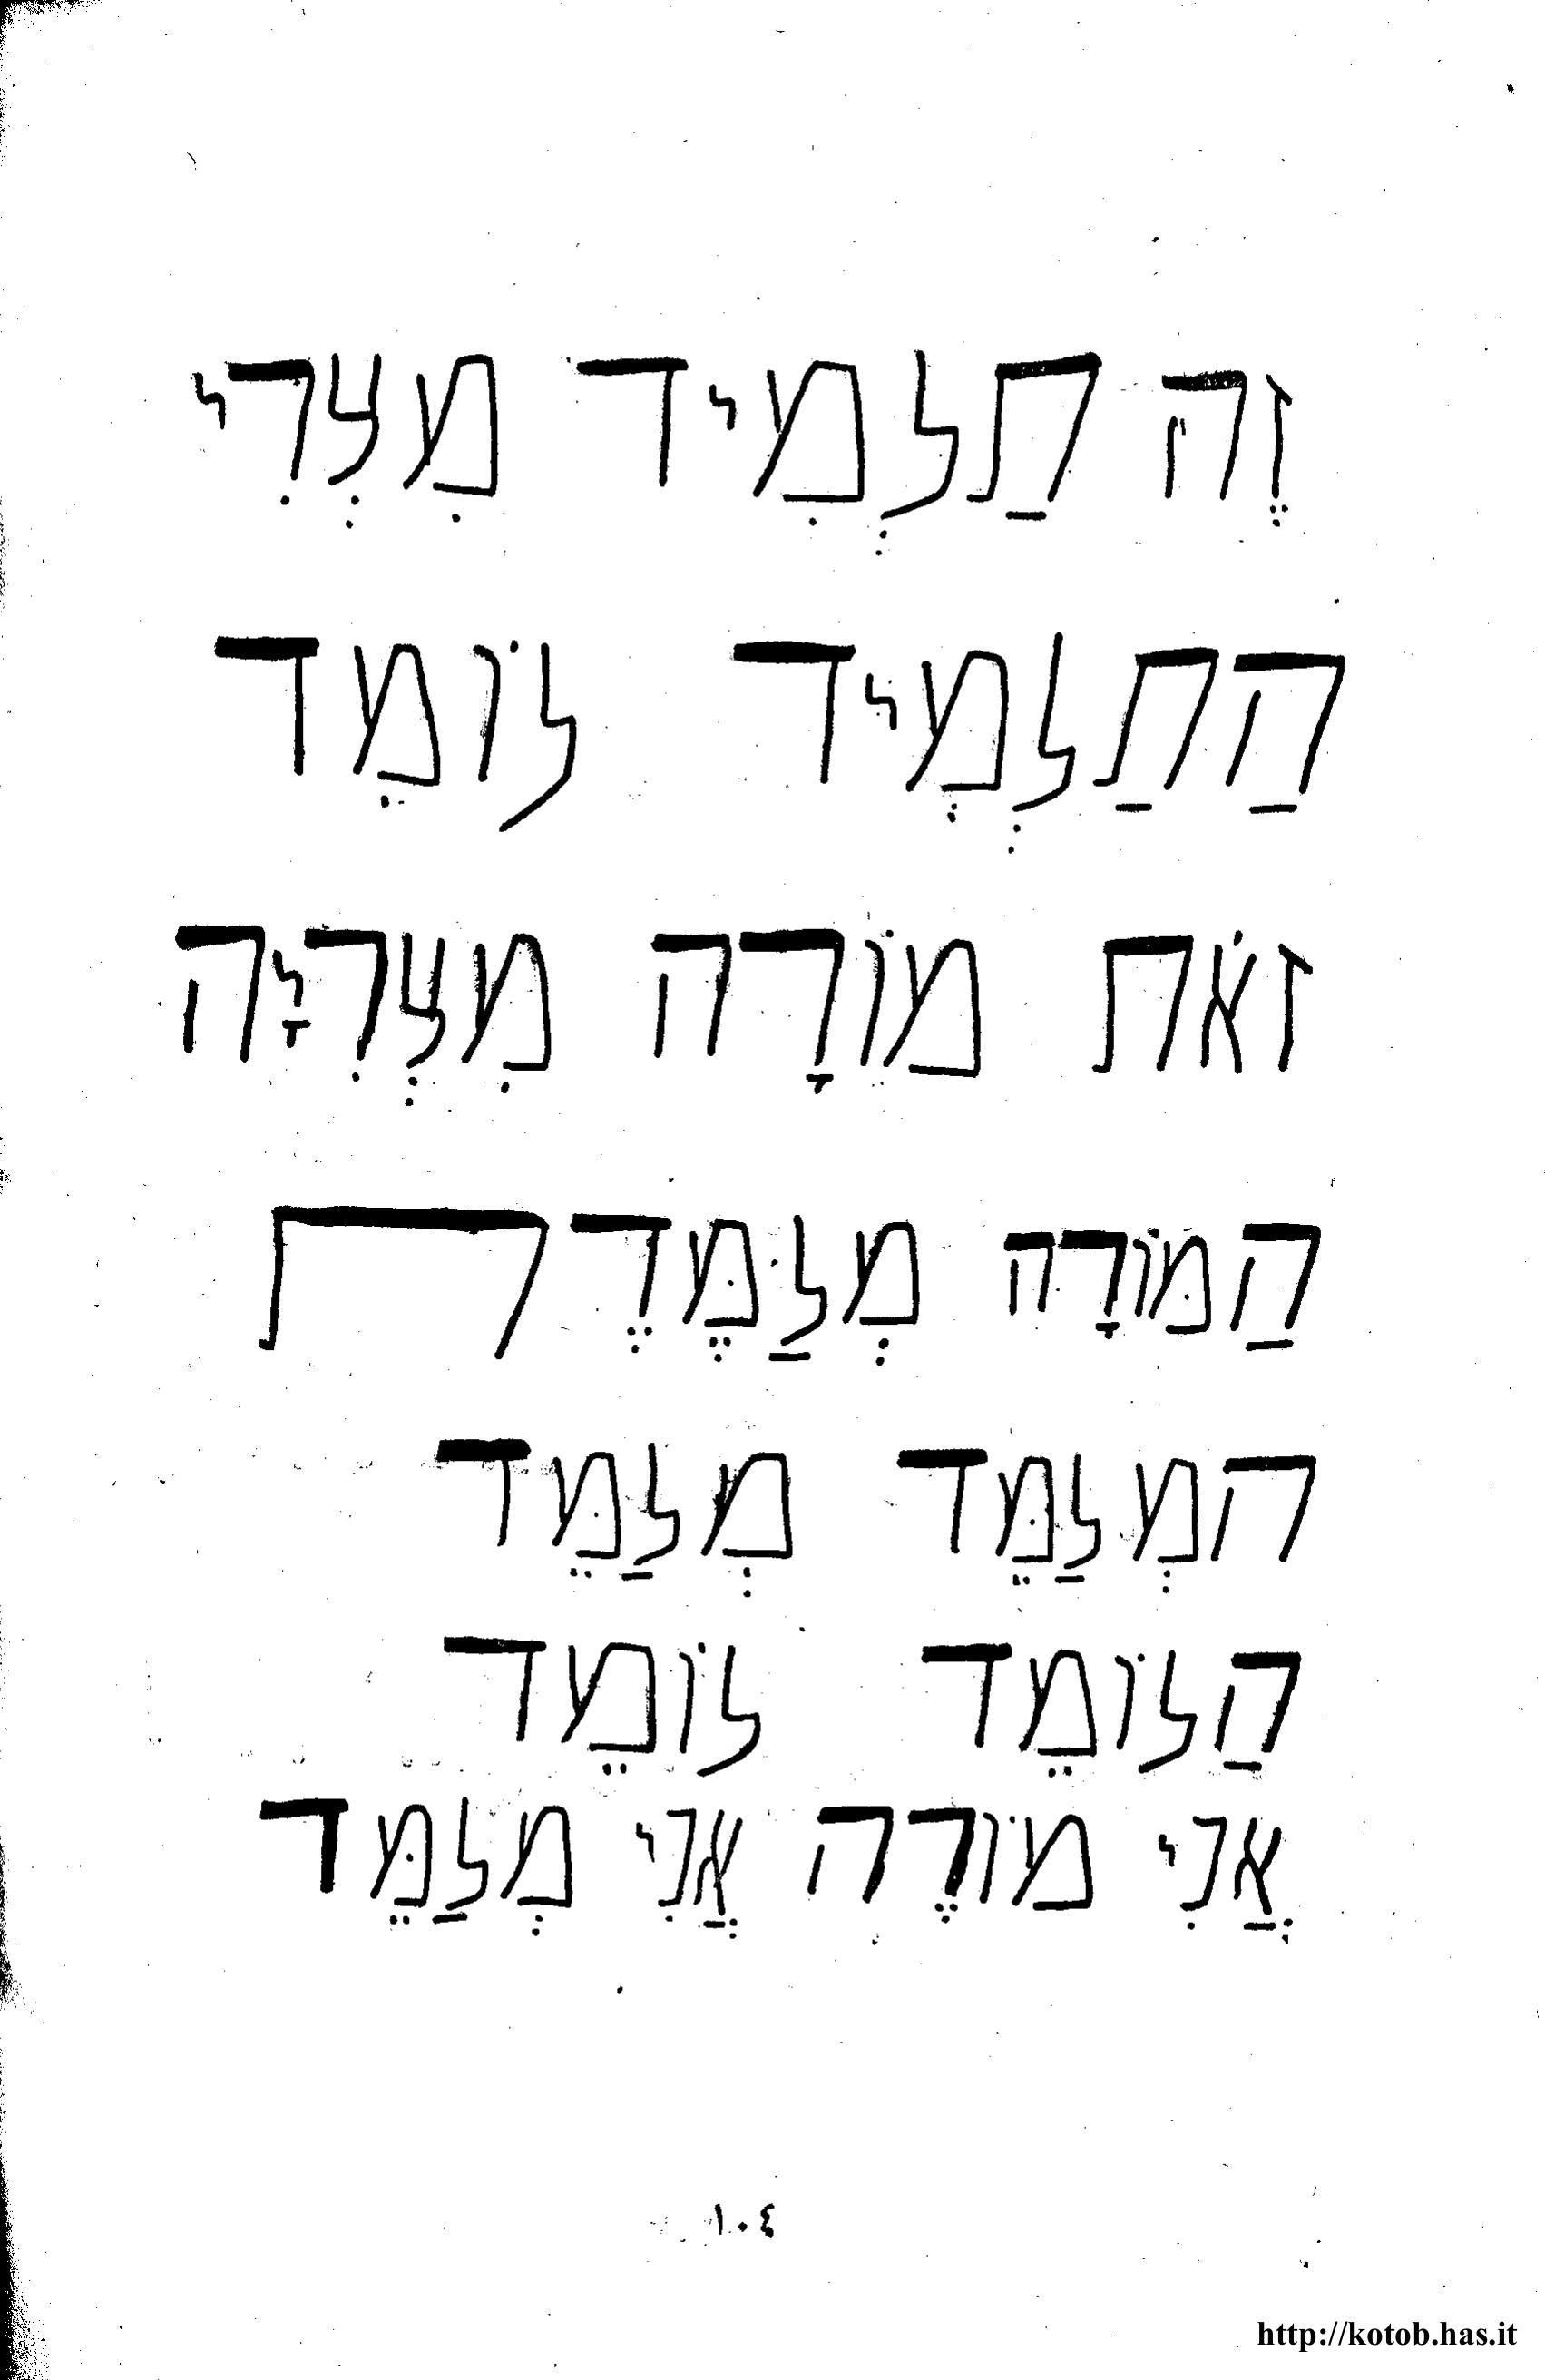 זֶה תַלְמִיד מִצְרִי
הַתַלְמְיד לוֹמֵד
זֹאת מוֹרָה מִצְרִיָּה
הַמּוֹרָה מְלַמֶּדֶת
המְלַמֵּד מְלַמֵּד
הַלוֹמֵד לוֹמֵד
אֲנִי מוֹרֶה אֲנִי מְלַמֵּד
١٠٤
http://kotob.has.it